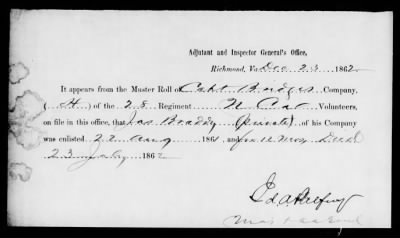 Adjutant and Inspector General's Office,
Richmond, Va. Dec 23 1862
It appears from the Master Roll of Capt Bridges Company,
(H) of the 28 Regiment N Car Volunteers,
on file in this office, that Jas Braddy (private) of his Company
was enlisted 22 Aug 1861, and
23 July 1862